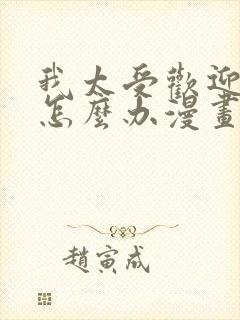 我太受歡迎
怎麼办漫畫
趙寅成